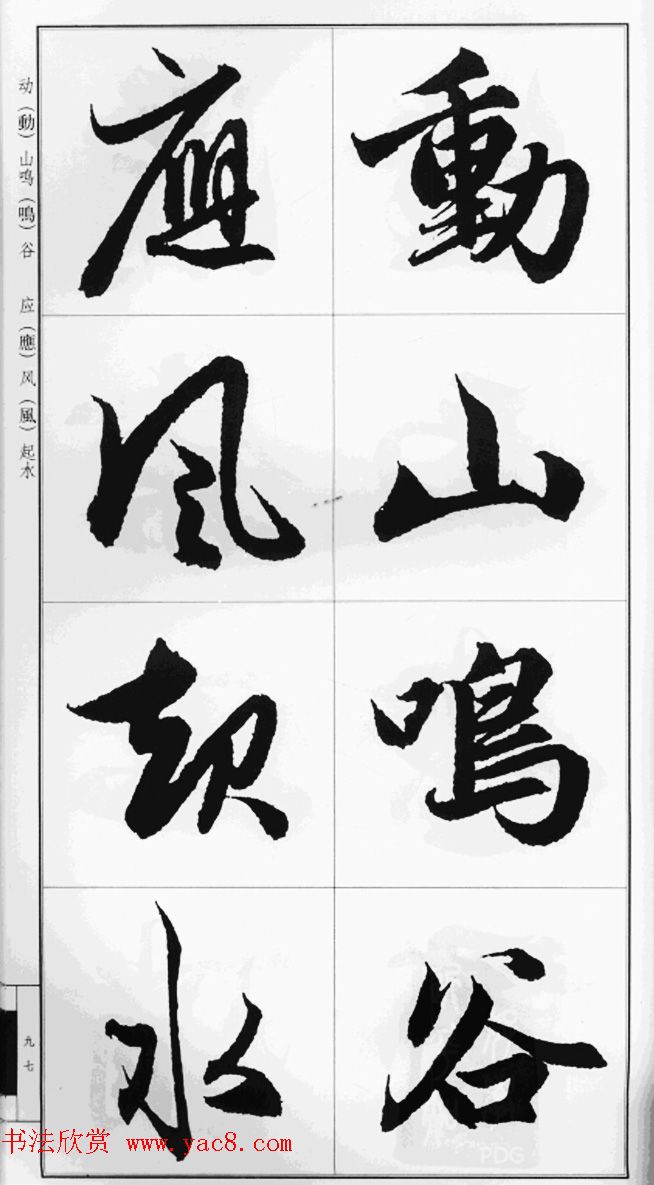 動山鳴谷
應風起水
动（動）山鸣（鳴）谷　应（應）风（風）起水
九七
书法欣赏 www.yac8.com
PDG